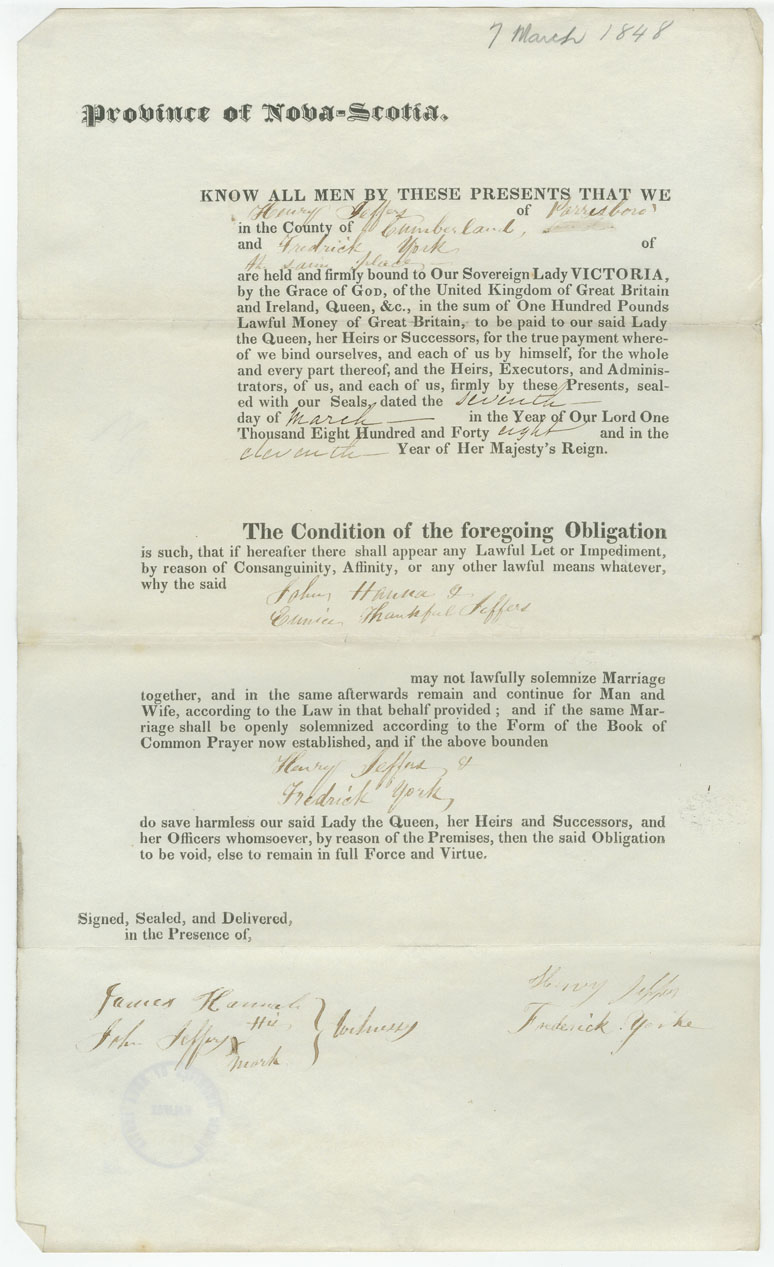 7 March 1848
Province of Nova-Scotia.
KNOW ALL MEN BY THESE PRESENTS THAT WE
Henry Jeffers of Parrsboro
in the County of Cumberland,
and Fredrick York of
the same place
are held and firmly bound to Our Sovereign Lady VICTORIA,
by the Grace of GOD, of the United Kingdom of Great Britain
and Ireland, Queen, &c., in the sum of One Hundred Pounds
Lawful Money of Great Britain, to be paid to our said Lady
the Queen, her Heirs or Successors, for the true payment where-
of we bind ourselves, and each of us by himself, for the whole
and every part thereof, and the Heirs, Executors, and Adminis-
trators, of us, and each of us, firmly by these Presents, seal-
ed with our Seals, dated the seventh
day of March in the Year of Our Lord One
Thousand Eight Hundred and Forty eight and in the
eleventh Year of Her Majesty's Reign.
The Condition of the foregoing Obligation
is such, that if hereafter there shall appear any Lawful Let or Impediment,
by reason of Consanguinity, Affinity, or any other lawful means whatever,
why the said John Hanna &
Eunice Thankful Jeffers
may not lawfully solemnize Marriage
together, and in the same afterwards remain and continue for Man and
Wife, according to the Law in that behalf provided ; and if the same Mar-
riage shall be openly solemnized according to the Form of the Book of
Common Prayer now established, and if the above bounden
Henry Jeffers &
Fredrick York,
do save harmless our said Lady the Queen, her Heirs and Successors, and
her Officers whomsoever, by reason of the Premises, then the said Obligation
to be void, else to remain in full Force and Virtue.
Signed, Sealed, and Delivered,
in the Presence of,
James Hannah
John Jeffers His x mark
} Witnesses
Henry Jeffers
Frederick Yorke